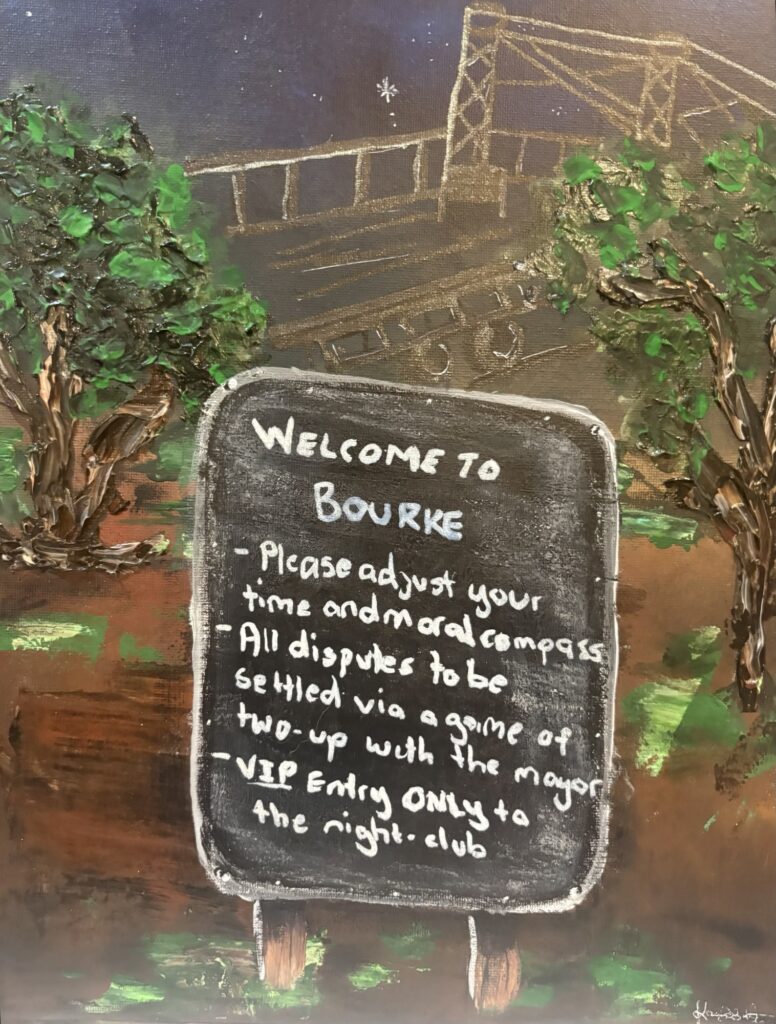 WELCOME TO
BOURKE
- Please adjust your
time and moral compass
- All disputes to be
settled via a game of
two-up with the mayor
- VIP Entry ONLY to
the night-club